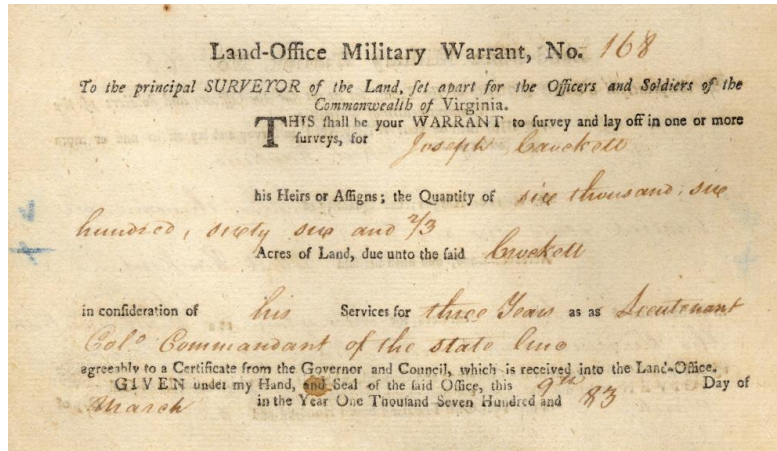 Land-Office Military Warrant, No. 168
To the principal SURVEYOR of the Land, ſet apart for the Officers and Soldiers of the
Commonwealth of Virginia.
THIS ſhall be your WARRANT to ſurvey and lay off in one or more
ſurveys, for Joseph Crockett
his Heirs or Aſſigns; the Quantity of six thousand, six
hundred, sixty six and 2/3
Acres of Land, due unto the ſaid Crockett
in conſideration of his Services for three Years as as Lieutenant
Colo Commandant of the state line
agreeably to a Certificate from the Governor and Council, which is received into the Land-Office.
GIVEN under my Hand, and Seal of the ſaid Office, this 9th Day of
March in the Year One Thouſand Seven Hundred and 83